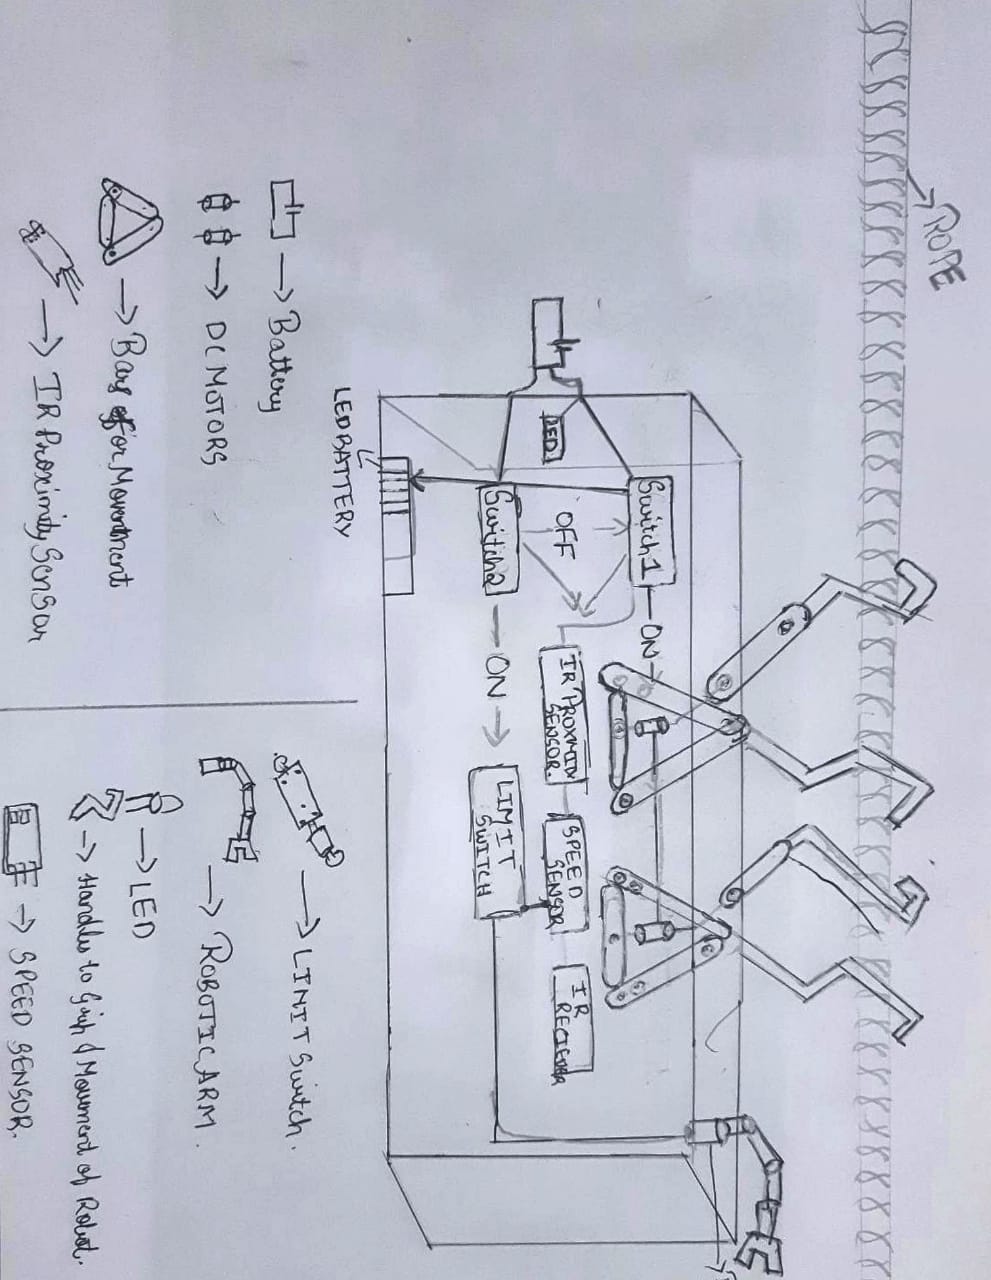 ROPE
Switch1
ON
OFF
LED
IR PROXMIX
SENSOR.
SPEED
SENSOR
IR
RECIEVER
Switch2
ON
LIMIT
SWITCH
LED BATTERY
Battery
DC MOTORS
Bars for Moventment
IR Proximity Sensor
LIMIT Switch.
ROBOTIC ARM.
LED
Handles to Grip & Movement of Robot.
SPEED SENSOR.